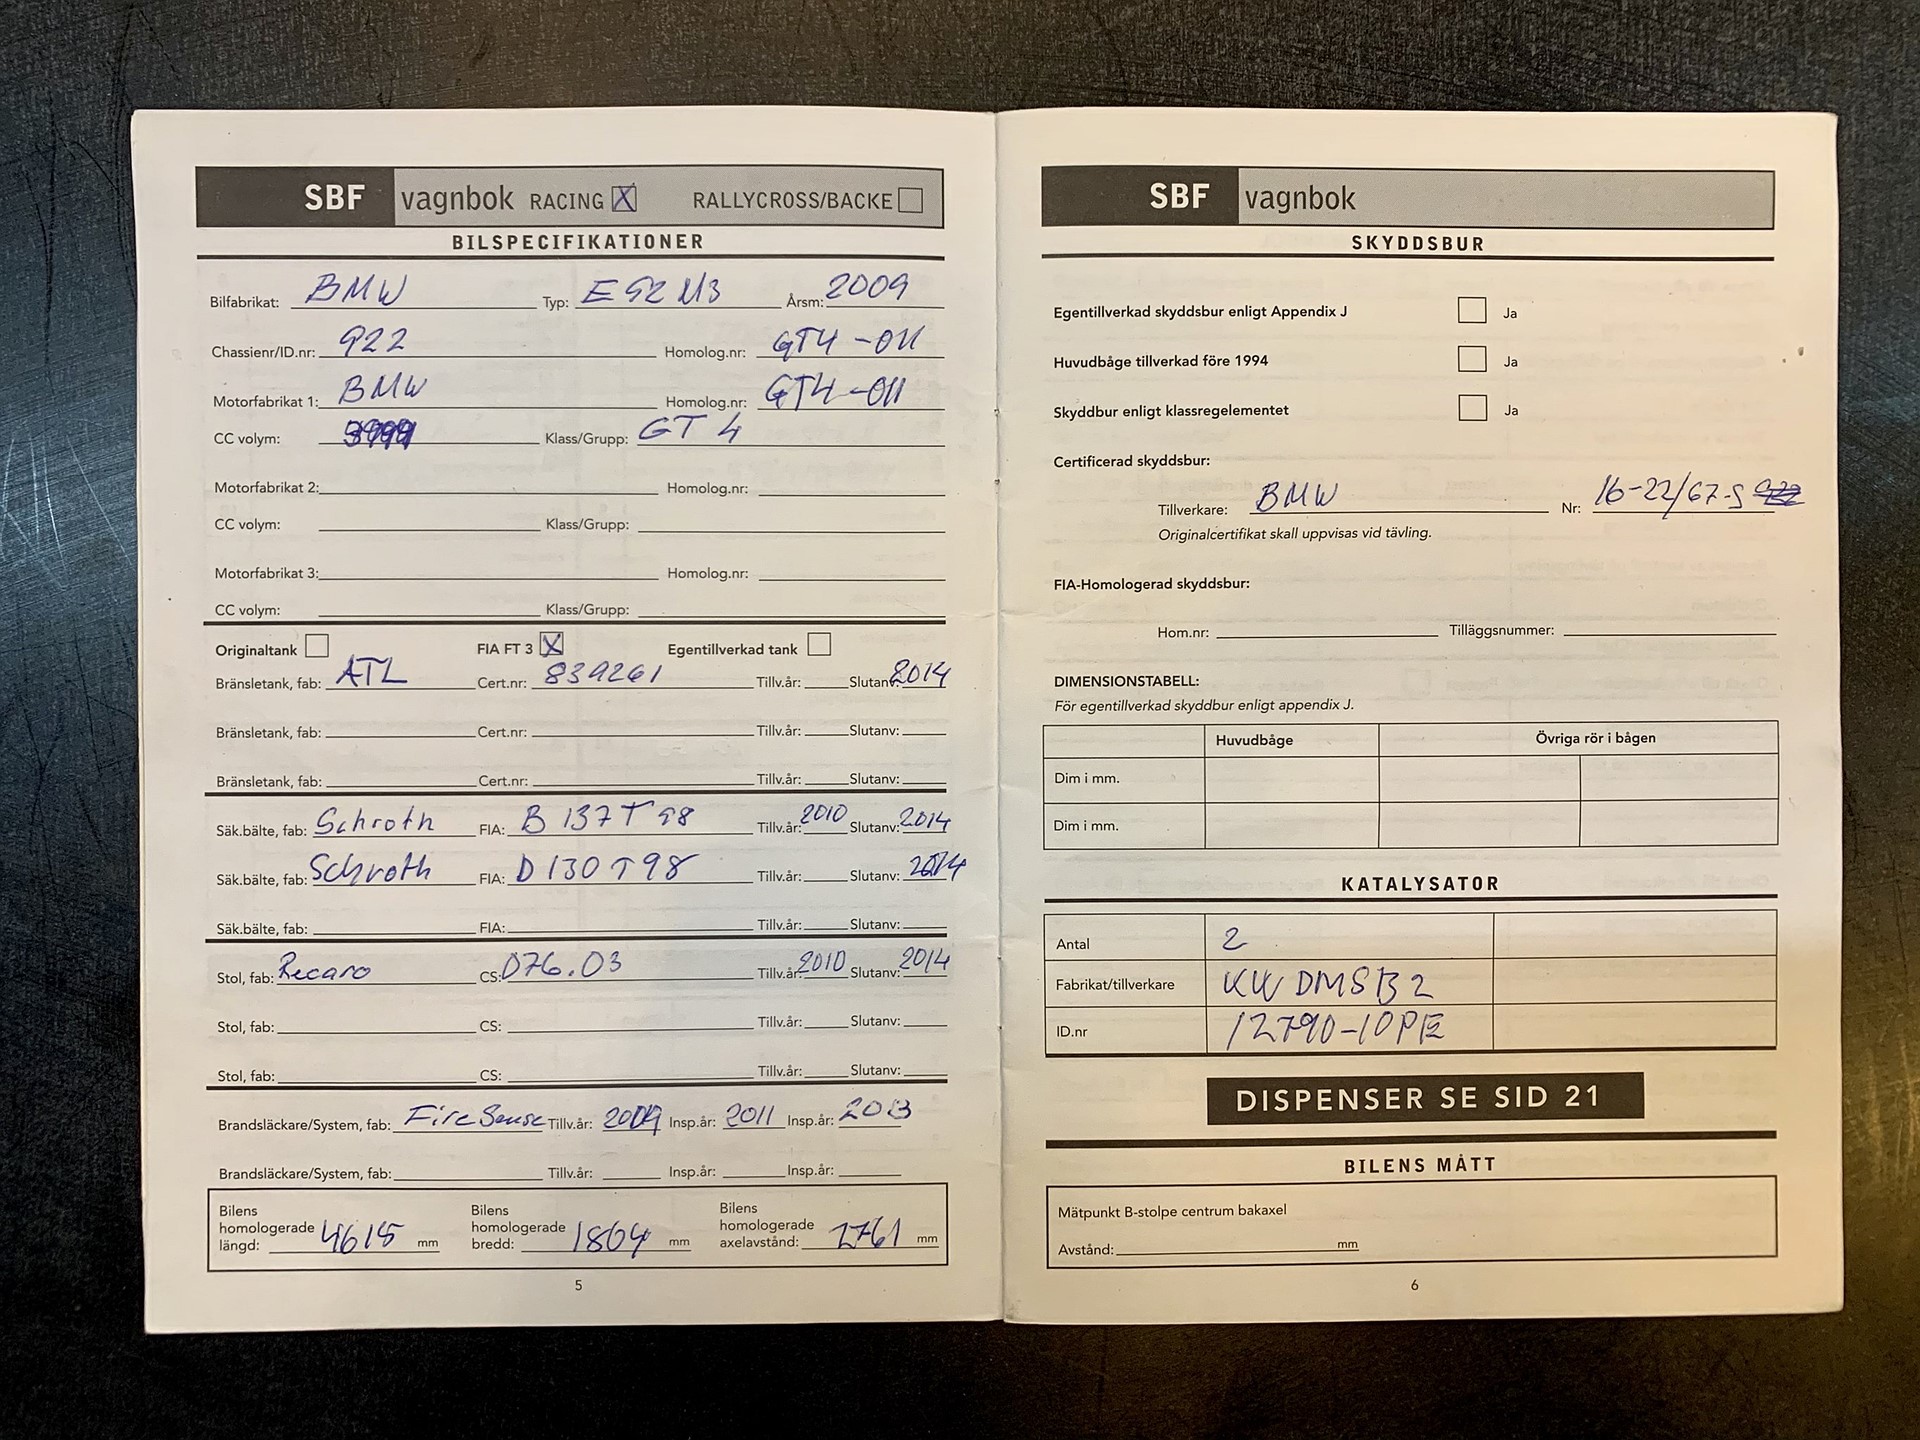 SBF vagnbok RACING X RALLYCROSS/BACKE
BILSPECIFIKATIONER
Bilfabrikat: BMW Typ: E92 M3 Årsm: 2009
Chassienr/ID.nr: 922 Homolog.nr: GT4-011
Motorfabrikat 1: BMW Homolog.nr: GT4-011
CC volym: Klass/Grupp: GT4
Motorfabrikat 2: Homolog.nr:
CC volym: Klass/Grupp:
Motorfabrikat 3: Homolog.nr:
CC volym: Klass/Grupp:
Originaltank FIA FT 3 X Egentillverkad tank
Bränsletank, fab: ATL Cert.nr: 839261 Tillv.år: Slutanv: 2014
Bränsletank, fab: Cert.nr: Tillv.år: Slutanv:
Bränsletank, fab: Cert.nr: Tillv.år: Slutanv:
Säk.bälte, fab: Schroth FIA: B 137 T 98 Tillv.år: 2010 Slutanv: 2014
Säk.bälte, fab: Schroth FIA: D 130 T 98 Tillv.år: Slutanv: 2014
Säk.bälte, fab: FIA: Tillv.år: Slutanv:
Stol, fab: Recaro CS: 076.03 Tillv.år: 2010 Slutanv: 2014
Stol, fab: CS: Tillv.år: Slutanv:
Stol, fab: CS: Tillv.år: Slutanv:
Brandsläckare/System, fab: FireSense Tillv.år: 2009 Insp.år: 2011 Insp.år: 2013
Brandsläckare/System, fab: Tillv.år: Insp.år: Insp.år:
Bilens homologerade längd: 4615 mm Bilens homologerade bredd: 1804 mm Bilens homologerade axelavstånd: 2761 mm
5
SBF vagnbok
SKYDDSBUR
Egentillverkad skyddsbur enligt Appendix J Ja
Huvudbåge tillverkad före 1994 Ja
Skyddbur enligt klassregelementet Ja
Certificerad skyddsbur:
Tillverkare: BMW Nr: 16-22/67-S
Originalcertifikat skall uppvisas vid tävling.
FIA-Homologerad skyddsbur:
Hom.nr: Tilläggsnummer:
DIMENSIONSTABELL:
För egentillverkad skyddbur enligt appendix J.
Huvudbåge Övriga rör i bågen
Dim i mm.
Dim i mm.
KATALYSATOR
Antal 2
Fabrikat/tillverkare KW DMSB 2
ID.nr 12790-10PE
DISPENSER SE SID 21
BILENS MÅTT
Mätpunkt B-stolpe centrum bakaxel
Avstånd: mm
6